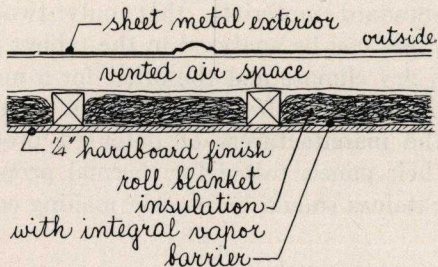 sheet metal exterior
outside
vented air space
1/4" hardboard finish
roll blanket
insulation
with integral vapor
barrier